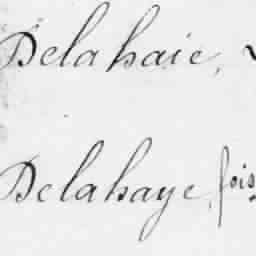 Delahaie,
Delahaye, fois